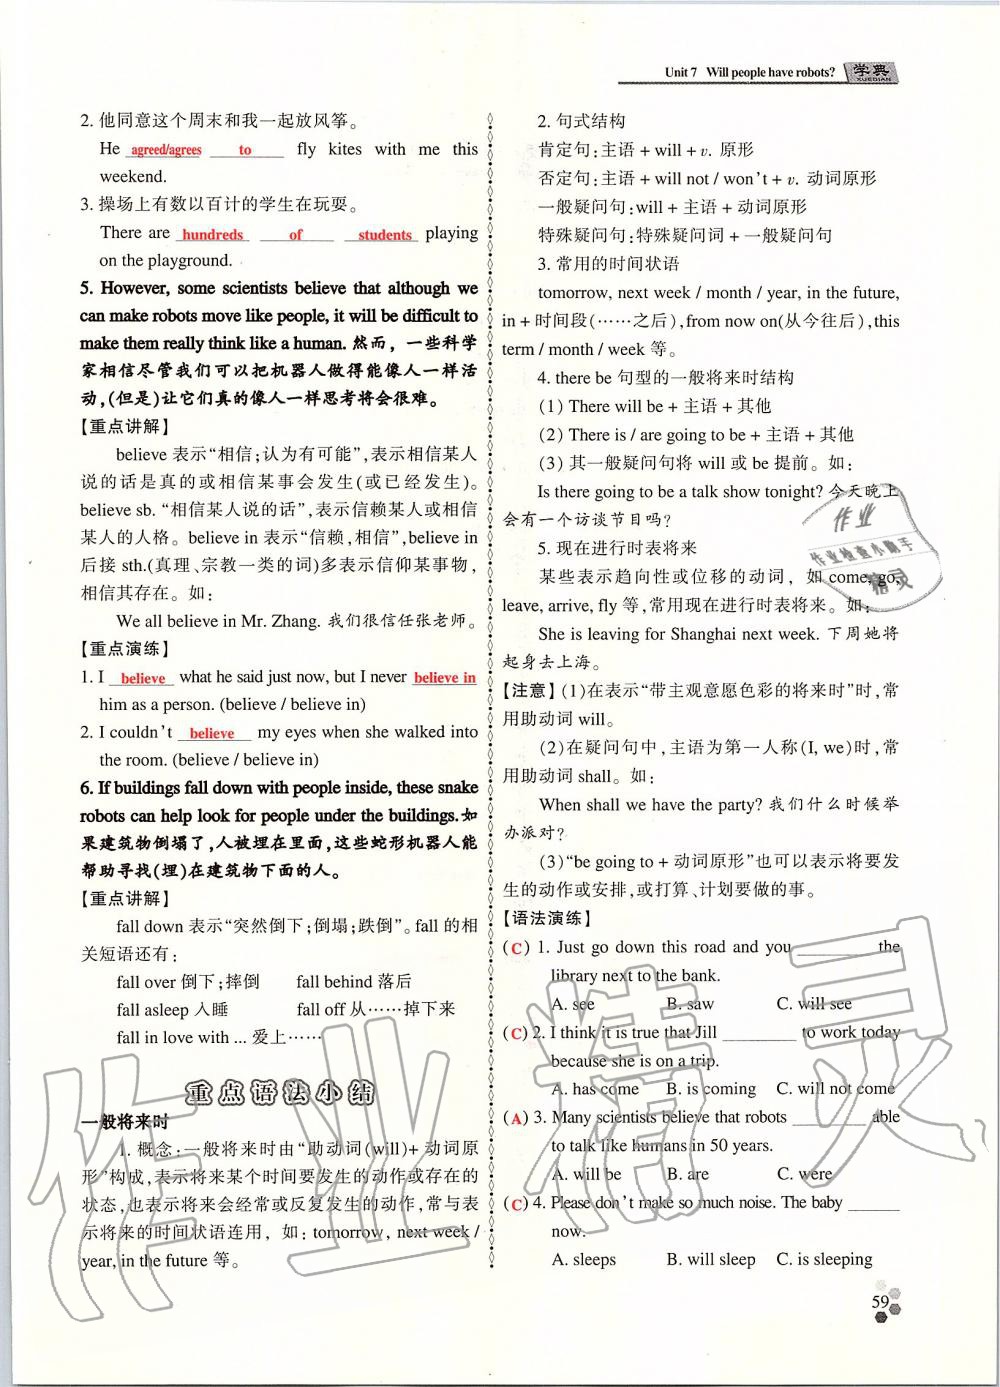 Unit 7 Will people have robots? 学典
XUEDIAN
2. 他同意这个周末和我一起放风筝。
He agreed/agrees to fly kites with me this
weekend.
3. 操场上有数以百计的学生在玩耍。
There are hundreds of students playing
on the playground.
5. However, some scientists believe that although we
can make robots move like people, it will be difficult to
make them really think like a human. 然而，一些科学
家相信尽管我们可以把机器人做得能像人一样活
动,(但是)让它们真的像人一样思考将会很难。
【重点讲解】
believe 表示“相信;认为有可能”,表示相信某人
说的话是真的或相信某事会发生(或已经发生)。
believe sb. “相信某人说的话”,表示信赖某人或相信
某人的人格。believe in 表示“信赖,相信”,believe in
后接 sth.(真理、宗教一类的词)多表示信仰某事物,
相信其存在。如:
We all believe in Mr. Zhang. 我们很信任张老师。
【重点演练】
1. I believe what he said just now, but I never believe in
him as a person. (believe / believe in)
2. I couldn’t believe my eyes when she walked into
the room. (believe / believe in)
6. If buildings fall down with people inside, these snake
robots can help look for people under the buildings.如
果建筑物倒塌了,人被埋在里面,这些蛇形机器人能
帮助寻找(埋)在建筑物下面的人。
【重点讲解】
fall down 表示“突然倒下;倒塌;跌倒”。fall 的相
关短语还有:
fall over 倒下;摔倒 fall behind 落后
fall asleep 入睡 fall off 从……掉下来
fall in love with ... 爱上……
重点语法小结
一般将来时
1. 概念:一般将来时由“助动词(will)+动词原
形”构成,表示将来某个时间要发生的动作或存在的
状态,也表示将来会经常或反复发生的动作,常与表
示将来的时间状语连用，如: tomorrow, next week /
year, in the future 等。
2. 句式结构
肯定句:主语 + will + v. 原形
否定句:主语 + will not / won’t + v. 动词原形
一般疑问句:will + 主语 + 动词原形
特殊疑问句:特殊疑问词 + 一般疑问句
3. 常用的时间状语
tomorrow, next week / month / year, in the future,
in + 时间段(……之后),from now on(从今往后),this
term / month / week 等。
4. there be 句型的一般将来时结构
(1) There will be + 主语 + 其他
(2) There is / are going to be + 主语 + 其他
(3) 其一般疑问句将 will 或 be 提前。如:
Is there going to be a talk show tonight? 今天晚上
会有一个访谈节目吗?
5. 现在进行时表将来
某些表示趋向性或位移的动词，如 come, go,
leave, arrive, fly 等,常用现在进行时表将来。如:
She is leaving for Shanghai next week. 下周她将
起身去上海。
【注意】(1)在表示“带主观意愿色彩的将来时”时,常
用助动词 will。
(2)在疑问句中,主语为第一人称(I, we)时,常
用助动词 shall。如:
When shall we have the party? 我们什么时候举
办派对?
(3)“be going to + 动词原形”也可以表示将要发
生的动作或安排,或打算、计划要做的事。
【语法演练】
(C) 1. Just go down this road and you ________ the
library next to the bank.
A. see B. saw C. will see
(C) 2. I think it is true that Jill ________ to work today
because she is on a trip.
A. has come B. is coming C. will not come
(A) 3. Many scientists believe that robots ________ able
to talk like humans in 50 years.
A. will be B. are C. were
(C) 4. Please don’t make so much noise. The baby ______
now.
A. sleeps B. will sleep C. is sleeping
59
作业
作业检查小助手
精灵
作业精灵